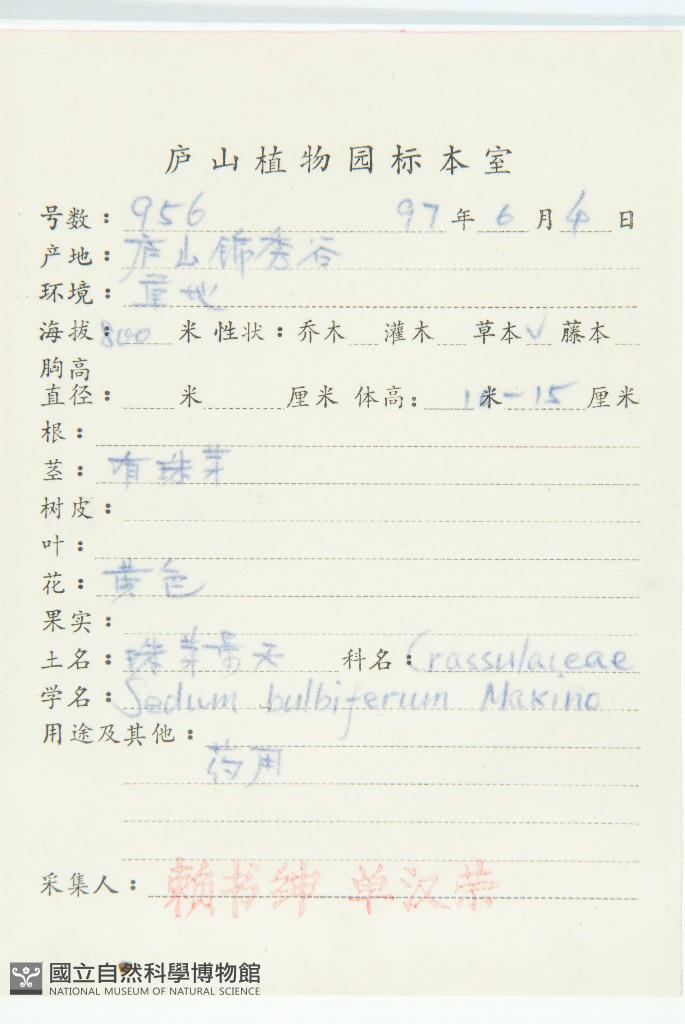 庐山植物园标本室
号数：956 97年6月4日
产地：庐山锦秀谷
环境：草地
海拔：800米 性状：乔木 灌木 草本√ 藤本
胸高
直径： 米 厘米 体高： 米10-15厘米
根：
茎：有珠芽
树皮：
叶：
花：黄色
果实：
土名：珠芽景天 科名：Crassulaceae
学名：Sedum bulbiferum Makino
用途及其他：
药用
采集人：赖书绅 单汉荣
國立自然科學博物館
NATIONAL MUSEUM OF NATURAL SCIENCE